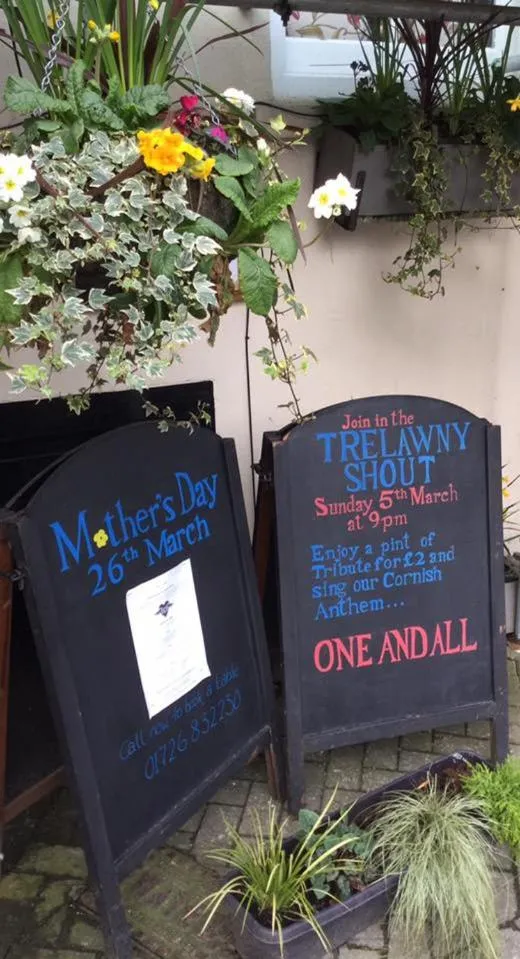 Mother's Day
26th March
Call now to book a table
01726 832230
Join in the
TRELAWNY
SHOUT
Sunday 5th March
at 9pm
Enjoy a pint of
Tribute for £2 and
sing our Cornish
Anthem...
ONE AND ALL